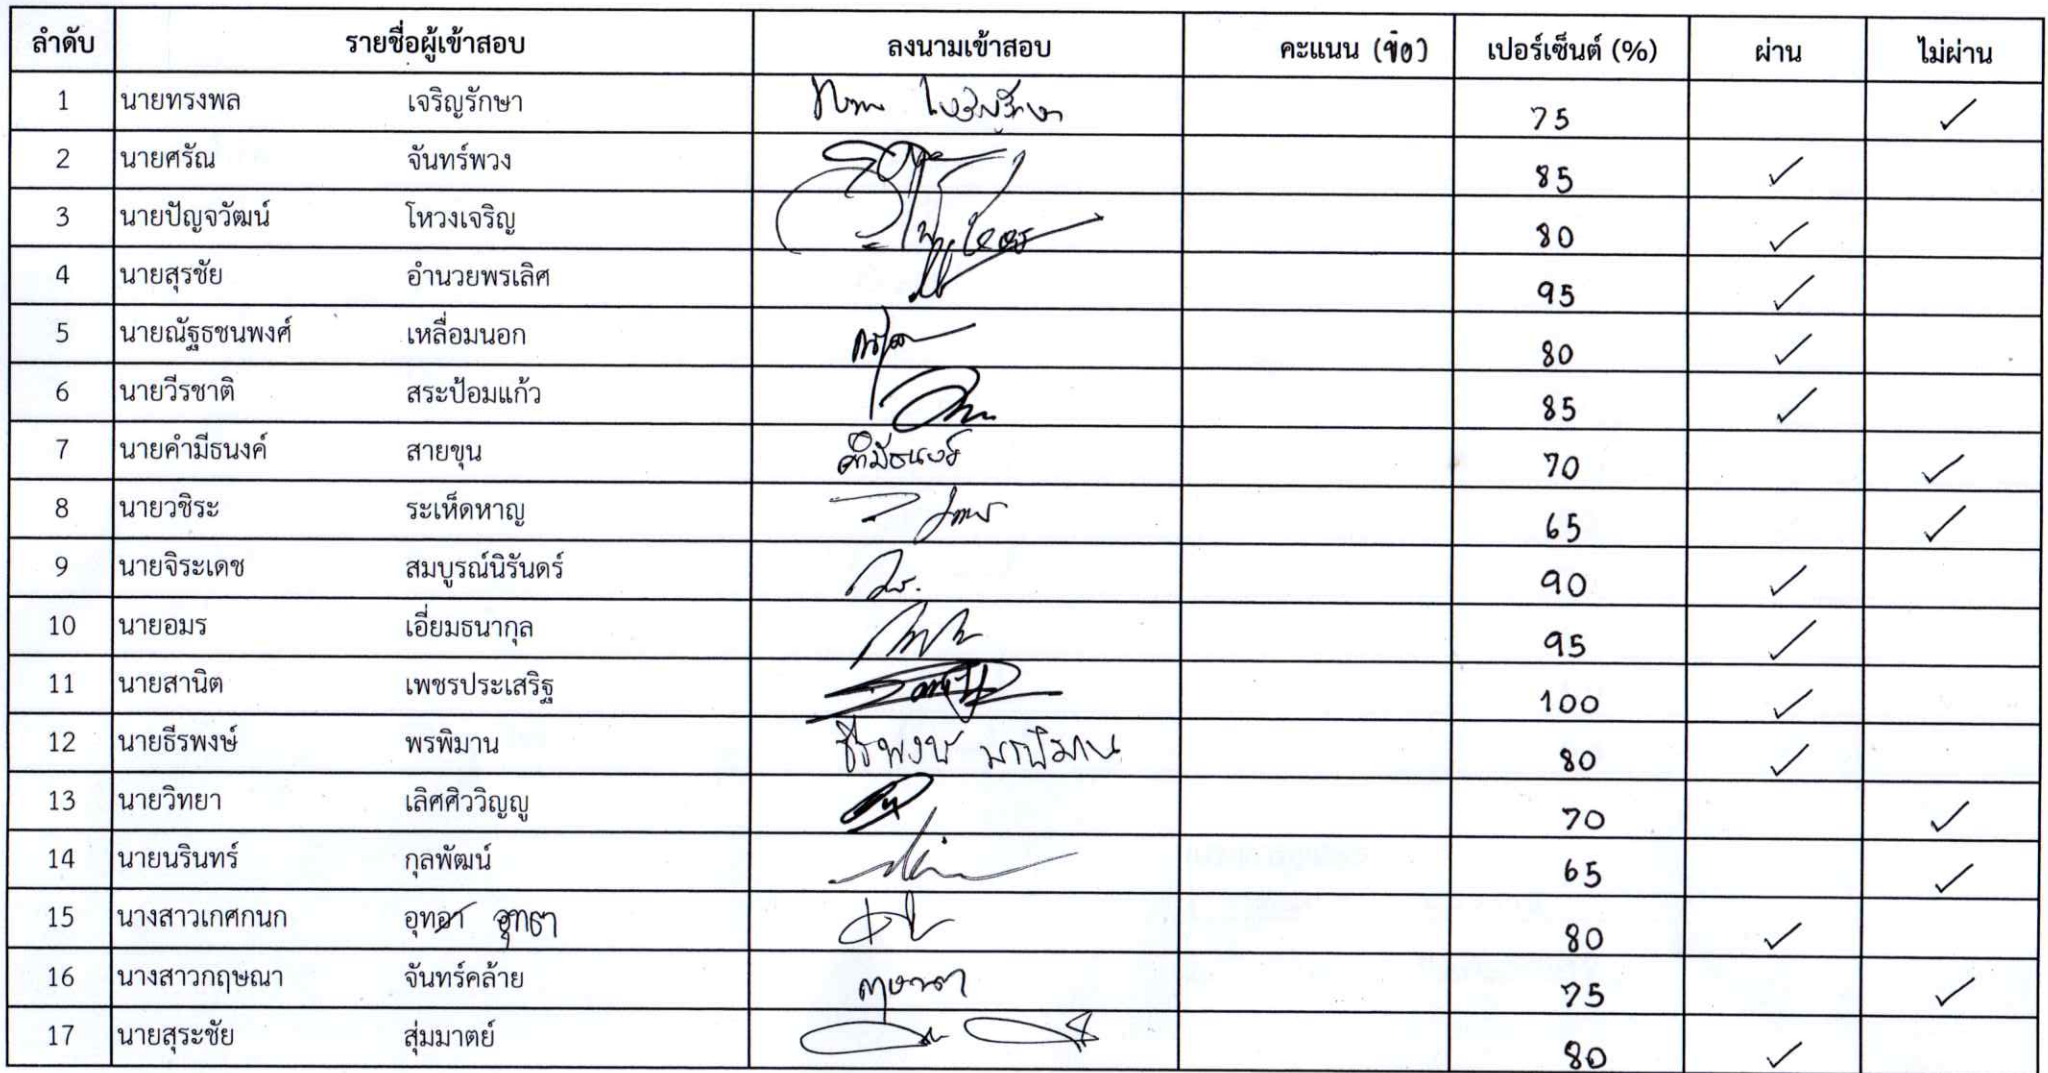 ลำดับ รายชื่อผู้เข้าสอบ ลงนามเข้าสอบ คะแนน (ข้อ) เปอร์เซ็นต์ (%) ผ่าน ไม่ผ่าน
1 นายทรงพล เจริญรักษา 75 ✓
2 นายศรัณ จันทร์พวง 85 ✓
3 นายปัญจวัฒน์ โหวงเจริญ 80 ✓
4 นายสุรชัย อำนวยพรเลิศ 95 ✓
5 นายณัฐธชนพงศ์ เหลื่อมนอก 80 ✓
6 นายวีรชาติ สระป้อมแก้ว 85 ✓
7 นายคำมีธนงค์ สายขุน 70 ✓
8 นายวชิระ ระเห็ดหาญ 65 ✓
9 นายจิระเดช สมบูรณ์นิรันดร์ 90 ✓
10 นายอมร เอี่ยมธนากุล 95 ✓
11 นายสานิต เพชรประเสริฐ 100 ✓
12 นายธีรพงษ์ พรพิมาน ธีรพงษ์ พรพิมาน 80 ✓
13 นายวิทยา เลิศศิววิญญู 70 ✓
14 นายนรินทร์ กุลพัฒน์ 65 ✓
15 นางสาวเกศกนก อุทธา 80 ✓
16 นางสาวกฤษณา จันทร์คล้าย 75 ✓
17 นายสุระชัย สุ่มมาตย์ 80 ✓